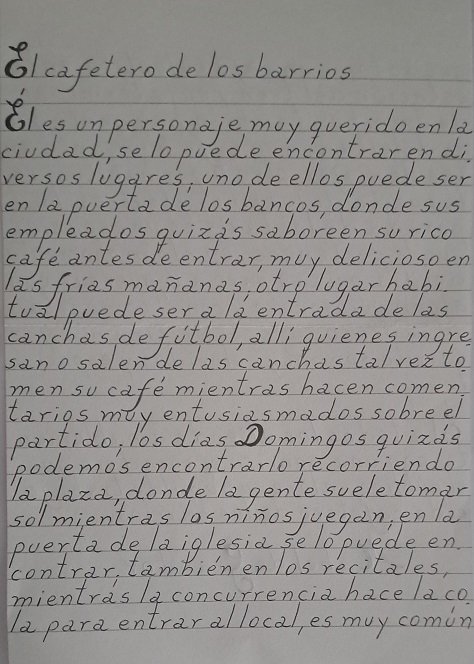 El cafetero de los barrios
Él es un personaje muy querido en la
ciudad, se lo puede encontrar en di.
versos lugares, uno de ellos puede ser
en la puerta de los bancos, donde sus
empleados quizás saboreen su rico
café antes de entrar, muy delicioso en
las frías mañanas, otro lugar habi.
tual puede ser a la entrada de las
canchas de fútbol, allí quienes ingre.
san o salen de las canchas tal vez to.
men su café mientras hacen comen.
tarios muy entusiasmados sobre el
partido; los días Domingos quizás
podemos encontrarlo recorriendo
la plaza, donde la gente suele tomar
sol mientras los niños juegan, en la
puerta de la iglesia se lo puede en.
contrar, también en los recitales,
mientras la concurrencia hace la co.
la para entrar al local, es muy común